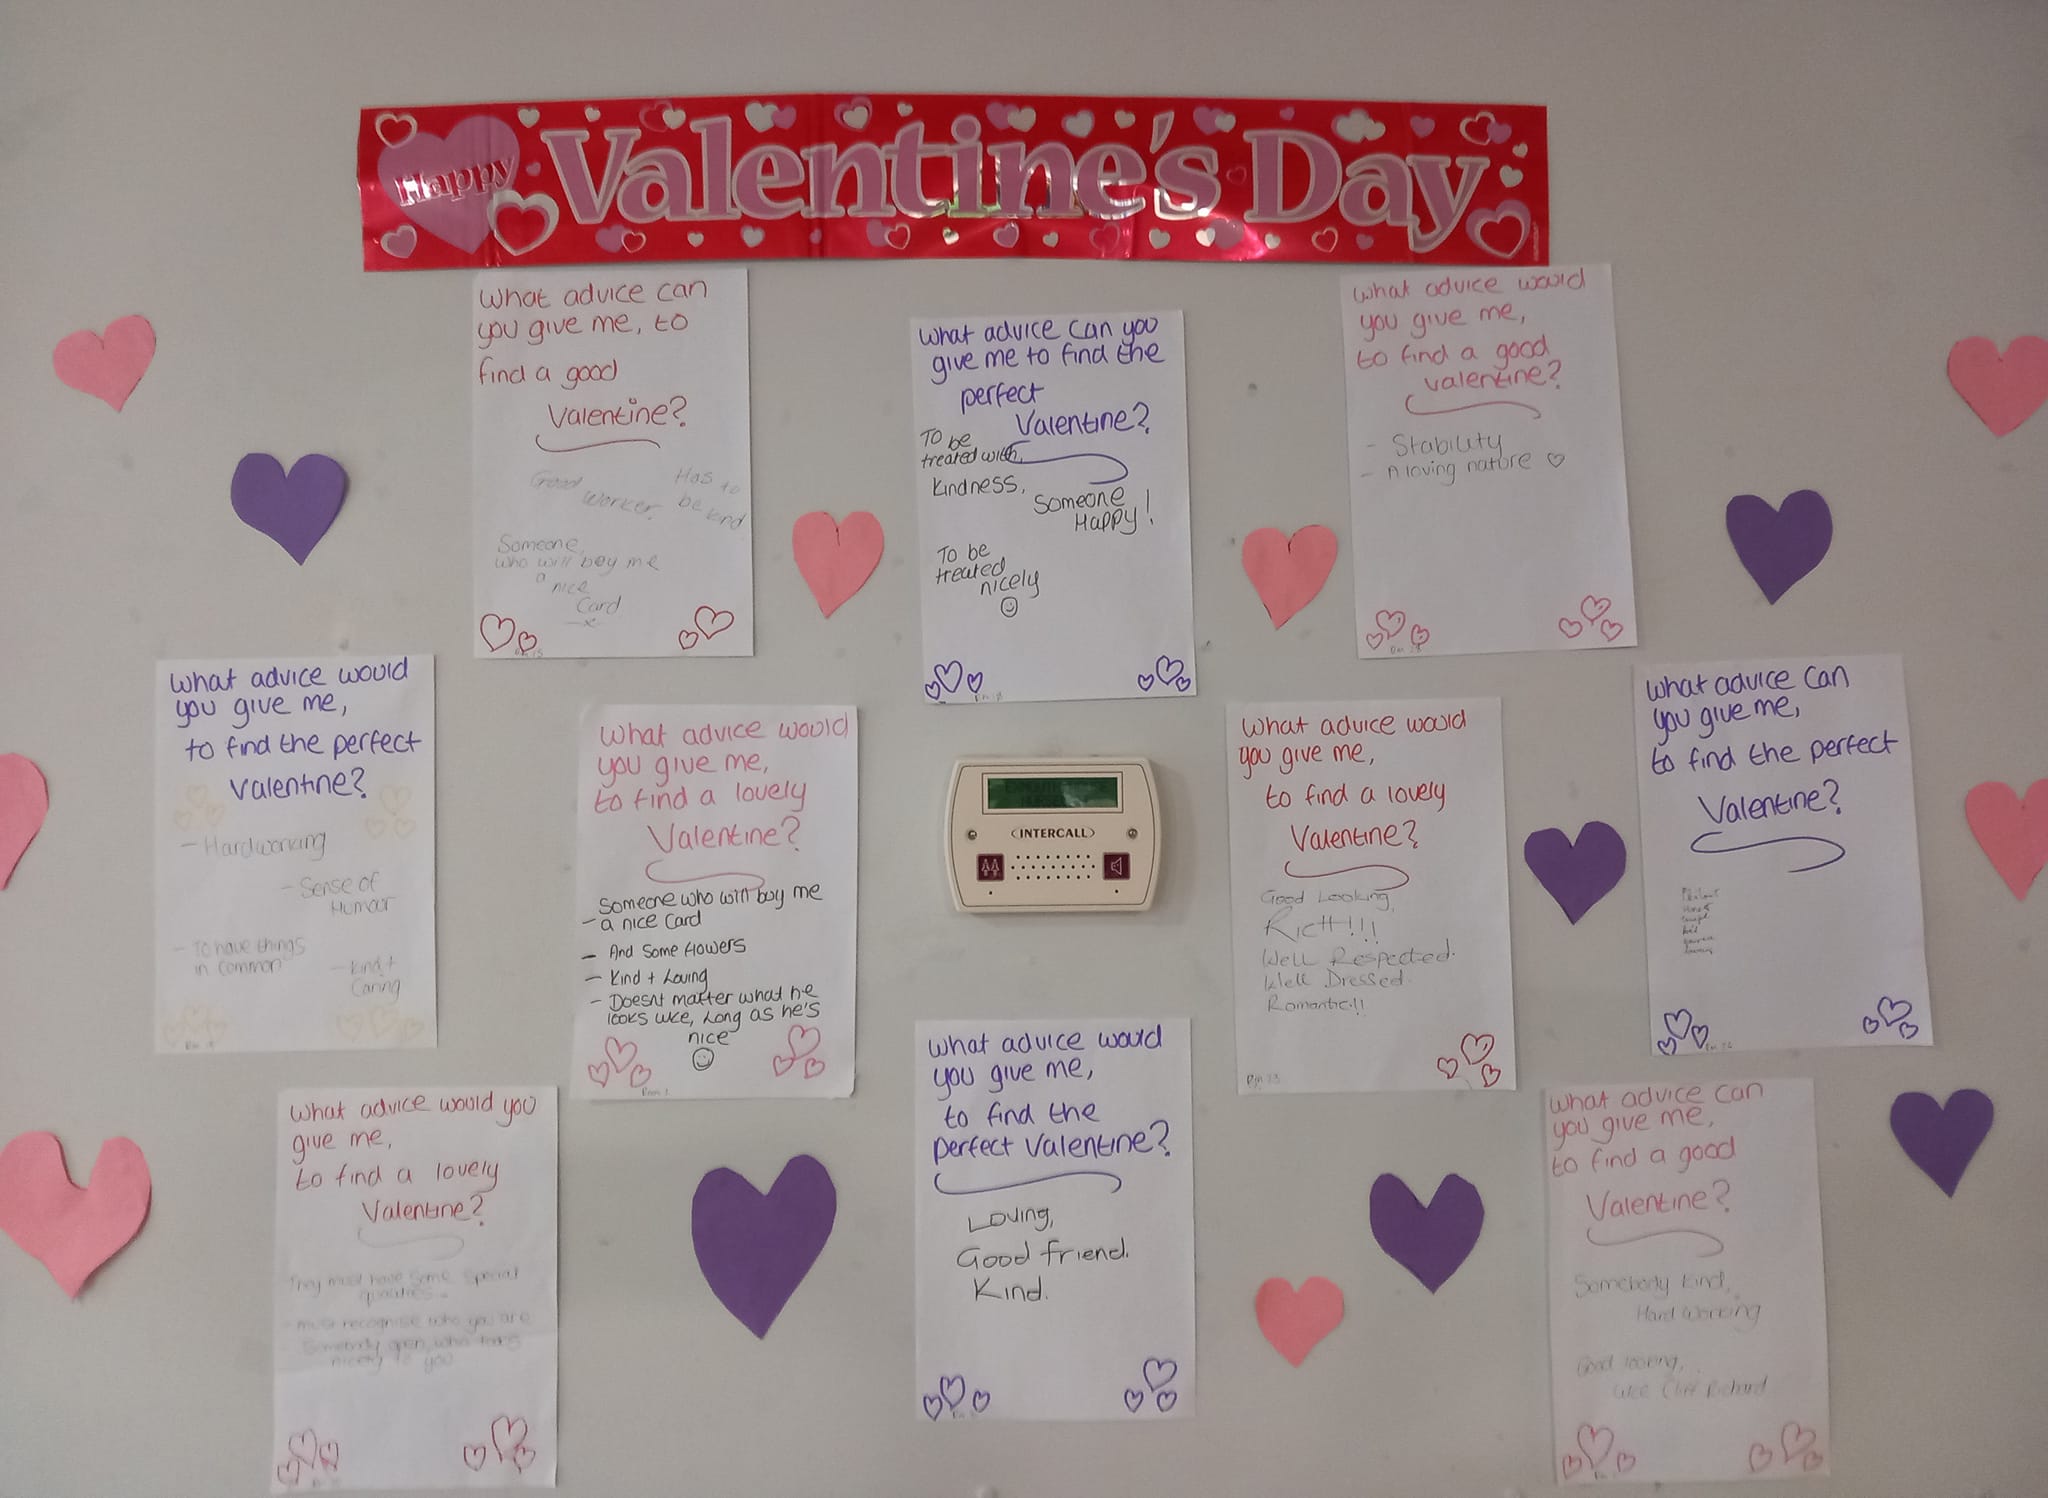 Happy Valentine's Day
What advice can
you give me, to
find a good
Valentine?
Good
Worker.
Has to
be kind
Someone,
who will buy me
a
nice
Card
x
What advice can you
give me to find the
perfect
Valentine?
To be
treated with
kindness.
Someone
Happy!
To be
treated
nicely
What advice would
you give me,
to find a good
valentine?
- Stability
- A loving nature
What advice would
you give me,
to find the perfect
Valentine?
- Hardworking
- Sense of
Humour
- To have things
in common
- kind +
Caring
What advice would
you give me,
to find a lovely
Valentine?
Someone who will buy me
- a nice Card
- And Some flowers
- Kind + Loving
- Doesnt matter what he
looks like, Long as he's
nice
Rm 1
INTERCALL
What advice would
you give me,
to find a lovely
Valentine?
Good Looking,
RicH!!!
Well Respected.
Well Dressed.
Romantic!!
Rm 23
What advice can
you give me,
to find the perfect
Valentine?
What advice would you
give me,
to find a lovely
Valentine?
They must have some special
qualities.
- must recognise who you are
- Somebody open, who talks
nicely to you
What advice would
you give me,
to find the
perfect Valentine?
Loving,
Good friend.
Kind.
What advice can
you give me,
to find a good
Valentine?
Somebody kind,
Hard working
Good looking,
like Cliff Richard